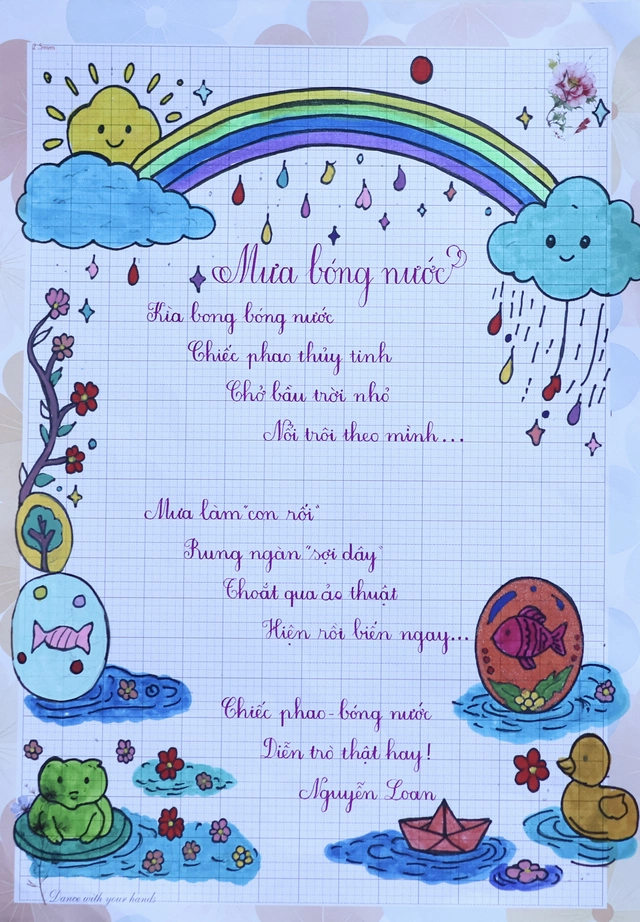 2.5mm
Mưa bóng nước
Kìa bong bóng nước
Chiếc phao thủy tinh
Chở bầu trời nhỏ
Nổi trôi theo mình...
Mưa làm "con rối"
Rung ngàn "sợi dây"
Thoắt qua ảo thuật
Hiện rồi biến ngay...
Chiếc phao - bóng nước
Diễn trò thật hay!
Nguyễn Loan
Dance with your hands